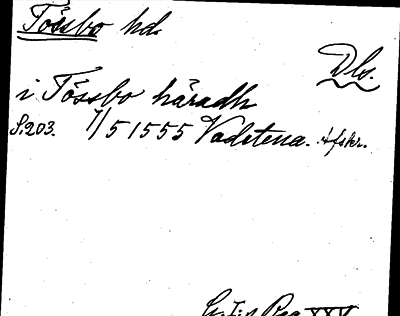 Tössbo hd.
Dls.
i Tössbo häradh
S. 203. 7/5 1555 Vadstena. Afskr.
G. I:s Reg XXV